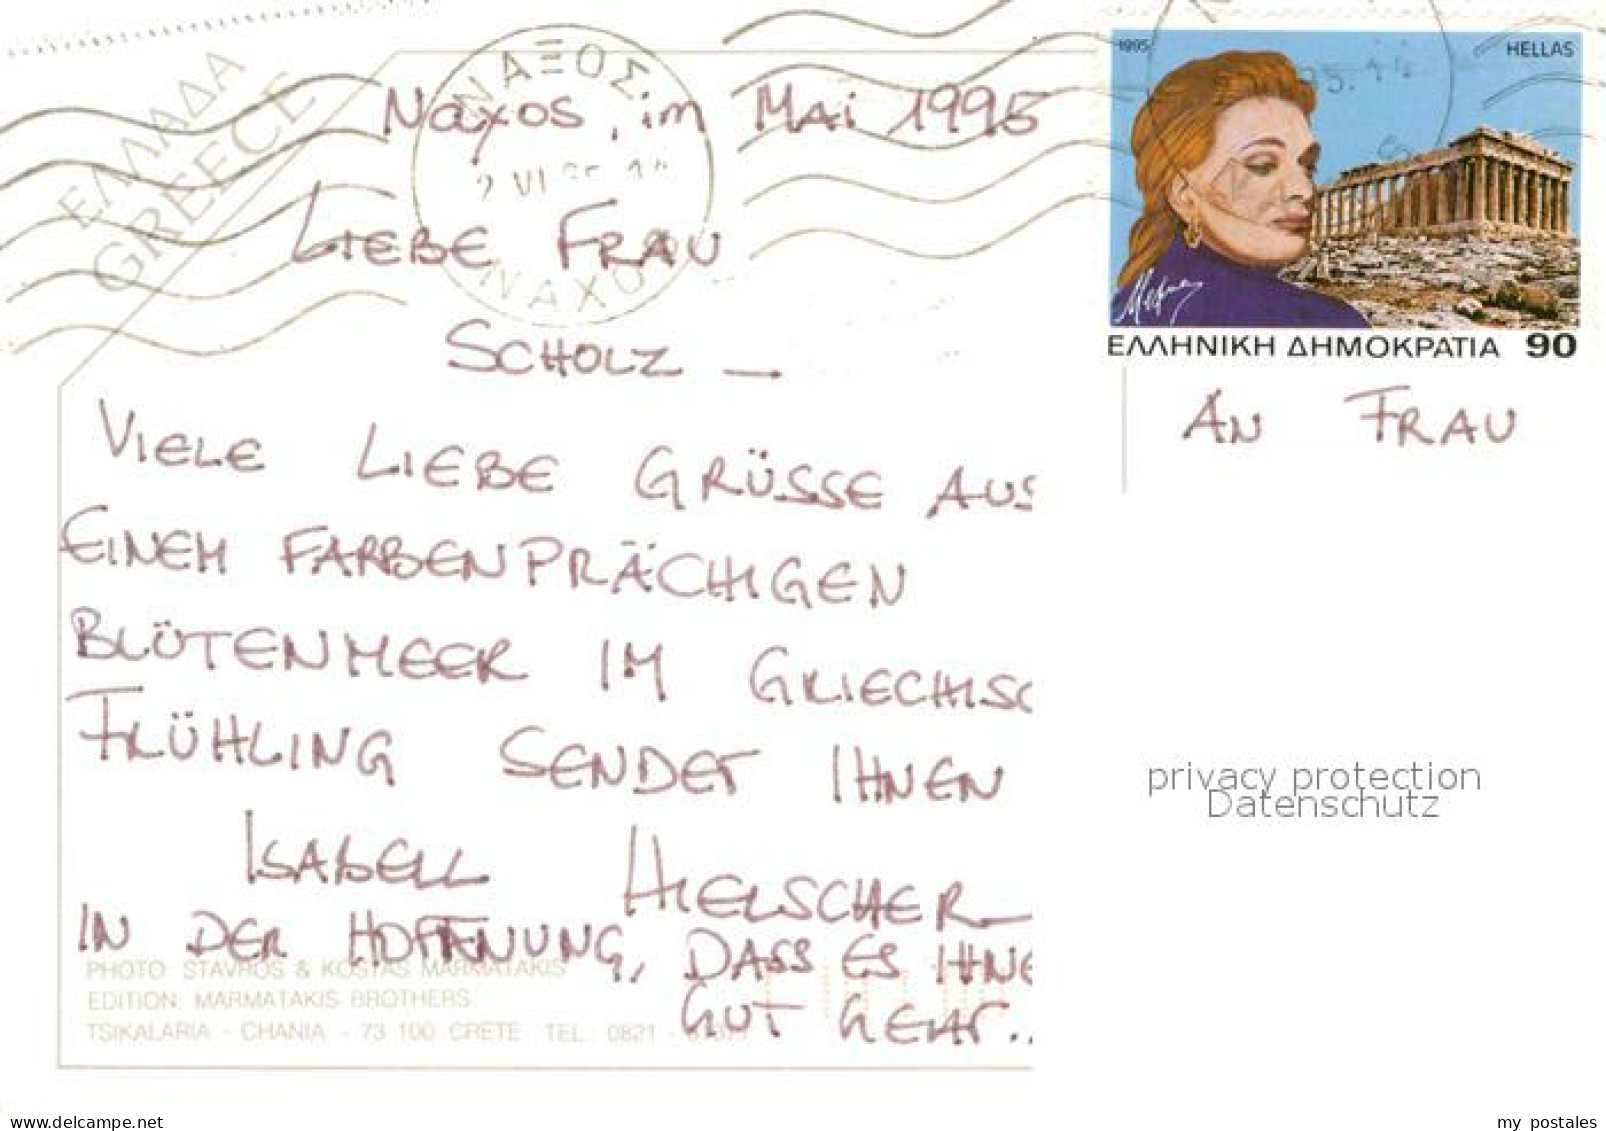 ΕΛΛΑΔΑ
GREECE
ΝΑΞΟΣ
NAXOS
Naxos, im Mai 1995
1995
HELLAS
ΕΛΛΗΝΙΚΗ ΔΗΜΟΚΡΑΤΙΑ 90
LIEBE FRAU
SCHOLZ –
VIELE LIEBE GRÜSSE AUS
EINEM FARBENPRÄCHIGEN
BLÜTENMEER IM GRIECHISC
FRÜHLING SENDET IHNEN
ISABELL HIELSCHER
IN DER HOFFNUNG, DASS ES IHNE
GUT GEHT..
PHOTO: STAVROS & KOSTAS MARMATAKIS
EDITION: MARMATAKIS BROTHERS
TSIKALARIA - CHANIA - 73 100 CRETE TEL.: 0821 -
AN FRAU
privacy protection
Datenschutz
www.delcampe.net
my_postales